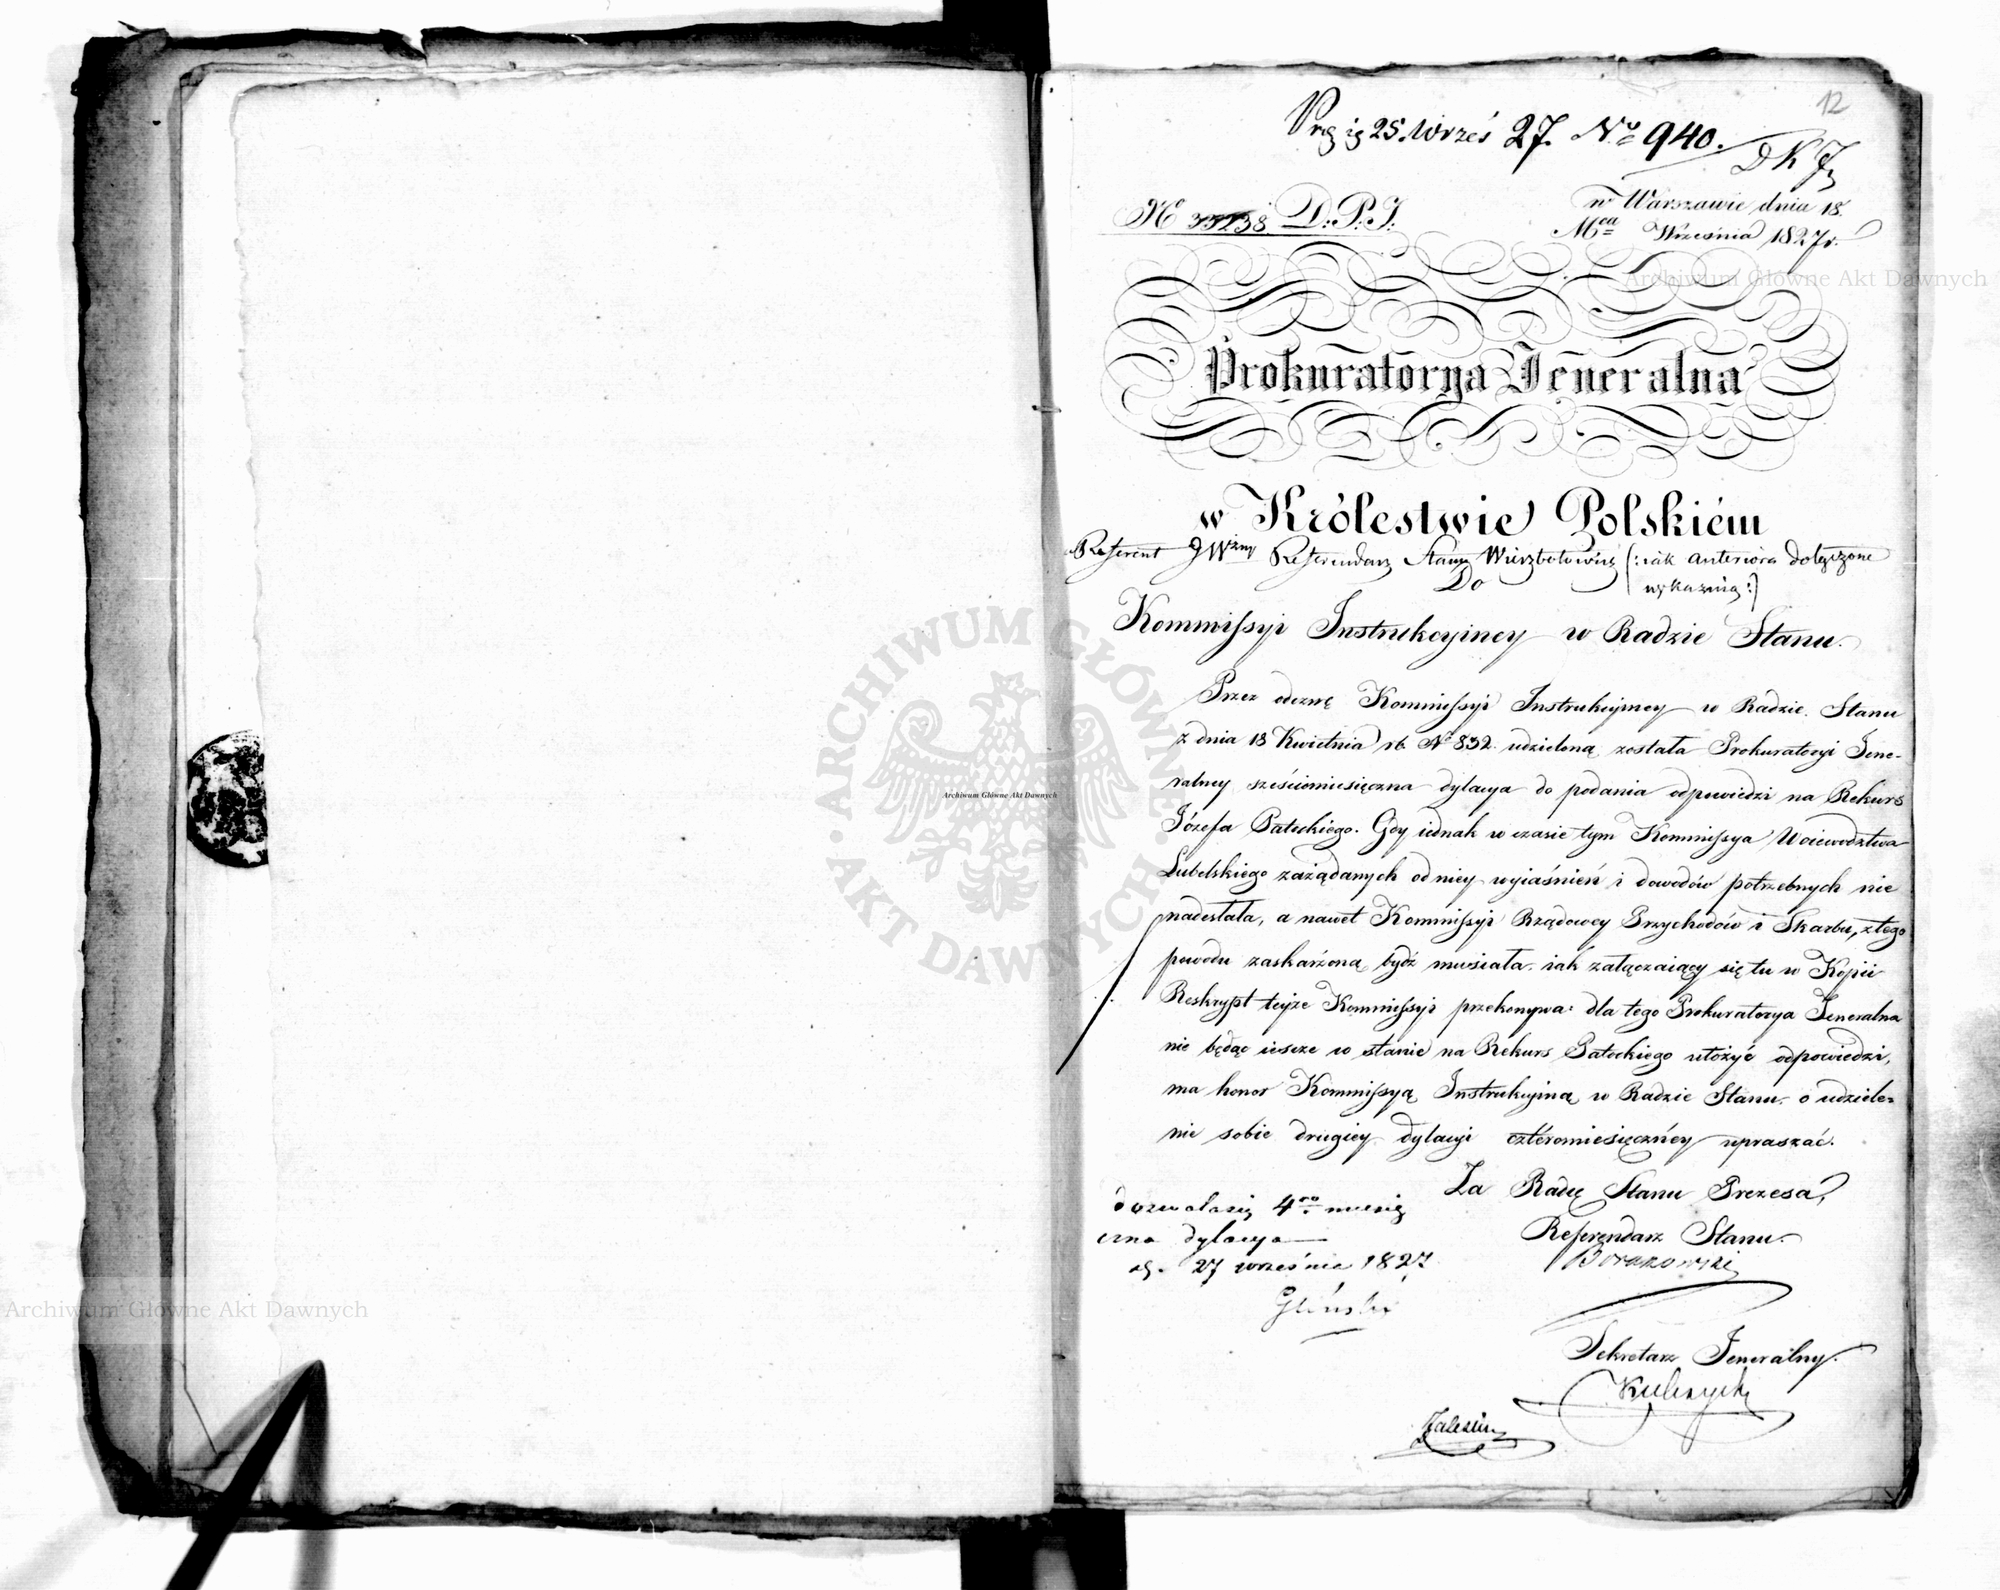 12
25. Wrześ 27. No 940.
DKJ
N 33238. D.P.J.
w Warszawie dnia 18.
Mca Września 1827 r.
Prokuratorya Jeneralna
w Królestwie Polskiém
Referent JWżny Referendarz Stanu Wierzbołowicz (: iak anteriora dołączone
wykazuią :)
Do
Kommissyi Instrukcyiney w Radzie Stanu.
Przez odezwę Kommissyi Instrukcyiney w Radzie Stanu
z dnia 18 Kwietnia rb. No 832. udzieloną została Prokuratoryi Jene-
ralney sześciomiesięczna dylacya do podania odpowiedzi na Rekurs
Józefa Patockiego. Gdy iednak w czasie tym Kommissya Woiewództwa
Lubelskiego zażądanych od niey wyiaśnień i dowodów potrzebnych nie
nadesłała, a nawet Kommissyi Rządowey Przychodów i Skarbu, z tego
powodu zaskarżoną bydź musiała, iak załączaiący się tu w Kopii
Reskrypt teyże Kommissyi przekonywa: dla tego Prokuratorya Jeneralna
nie będąc ieszcze w stanie na Rekurs Patockiego ułożyć odpowiedzi,
ma honor Kommissyą Instrukcyiną w Radzie Stanu o udziele=
nie sobie drugiey dylacyi cztéromiesięczney upraszać.
Za Radcę Stanu Prezesa,
Referendarz Stanu.
Borakowski
dozwala się 4ro miesię
czna dylacya
d. 27 września 1827
Gliński
Sekretarz Jeneralny.
Kulczycki
Zaleski
Archiwum Główne Akt Dawnych
Archiwum Główne Akt Dawnych
Archiwum Główne Akt Dawnych
ARCHIWUM GŁÓWNE · AKT DAWNYCH ·